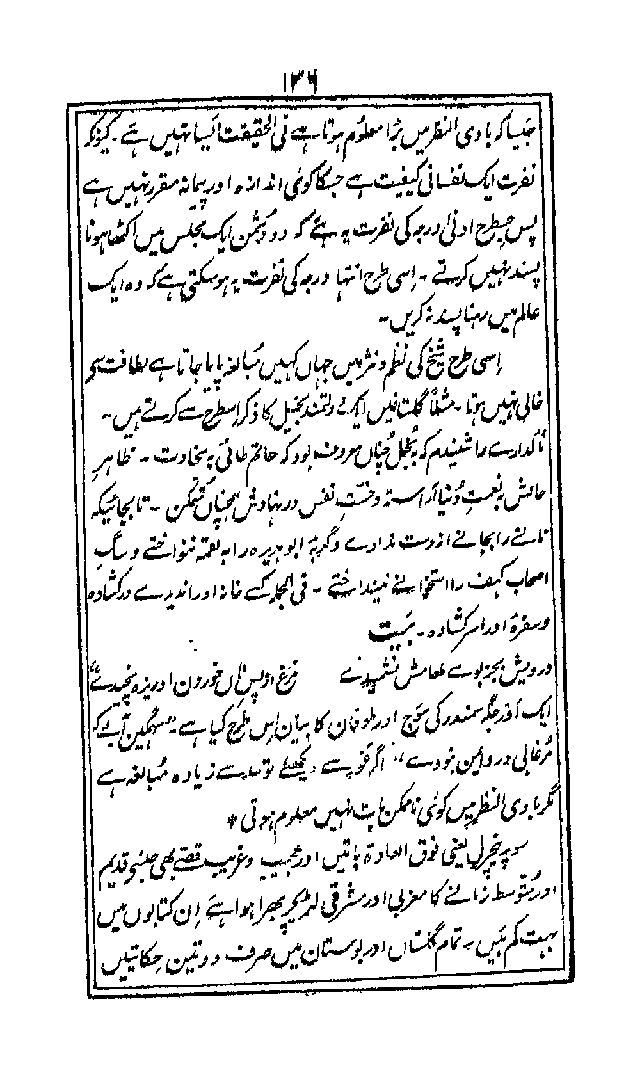 ۱۳۶
جیسا کہ بادی النظر میں بڑا معلوم ہوتا ہے فی الحقیقت ایسا نہیں ہے ۔ کیونکہ
نفرت ایک نفسانی کیفیت ہے جسکا کوئی اندازہ اور پیمانہ مقرر نہیں ہے
پس جسطرح ادنیٰ درجہ کی نفرت یہ ہے کہ دو دشمن ایک مجلس میں اکٹھا ہونا
پسند نہیں کرتے ۔ اِسی طرح انتہا درجہ کی نفرت یہ ہو سکتی ہے کہ وہ ایک
عالم میں رہنا پسند نہ کریں ۔
اِسی طرح شیخ کی نظم و نثر میں جہاں کہیں مُبالغہ پایا جاتا ہے لطافت سے
خالی نہیں ہوتا ۔ مثلاً گلستاں میں ایک دولتمند بخیل کا ذکر اِسطرح سے کرتے ہیں ۔
"مالدارے را شنیدم کہ بہ بُخل چُناں معروف بود کہ حاتم طائی بہ سخاوت ۔ ظاہرِ
حالش بہ نعمتِ دُنیا آراستہ و خسّتِ نفس در نہادش ہمچناں متمکن ۔ تا بجائیکہ
نانے را بجانے از دست ندادے و گربۂ ابو ہریرہ را بہ لقمۂ ننواختے و سگِ
اصحابِ کہف را استخوانے نینداختے ۔ فی الجملہ کسے خانۂ او را ندیدے در کشادہ
و سفرۂ او را سر کشادہ ۔ بَیت
درویش بجز بوے طعامش نشنیدے مُرغ از پسِ نان خوردنِ او ریزہ نچیدے"
ایک اَور جگہ سمندر کی موج اور طوفان کا بیان اِس طرح کیا ہے ۔ "سہمگیں آبے کہ
مُرغابی درو ایمن نبودے" اگر غور سے دیکھئے تو حد سے زیادہ مُبالغہ ہے
مگر بادی النظر میں کوئی ناممکن بات نہیں معلوم ہوتی *
سوپر نیچرل یعنی فوق العادۃ باتیں اور عجیب و غریب قصّے بھی جنسے قدیم
اور مُتوسط زمانے کا مغربی اور مشرقی لٹریچر بھرا ہوا ہے اِن کتابوں میں
بہت کم ہیں ۔ تمام گلستاں اور بوستان میں صرف دو تین حکایتیں